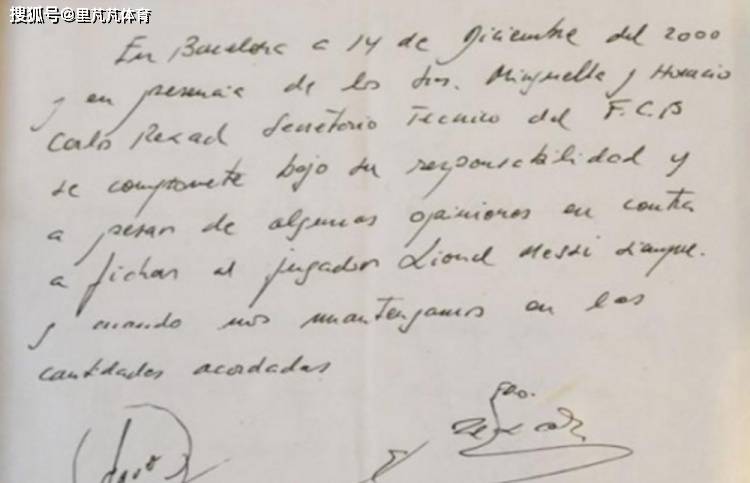 搜狐号@里芃芃体育
En Barcelona a 14 de Diciembre del 2000
y en presencia de los Srs. Minguella y Horacio
Carlos Rexach Secretario Tecnico del F.C.B
se compromete bajo su responsabilidad y
a pesar de algunas opiniones en contra
a fichar al jugador Lionel Messi siempre
y cuando nos mantengamos en las
cantidades acordadas